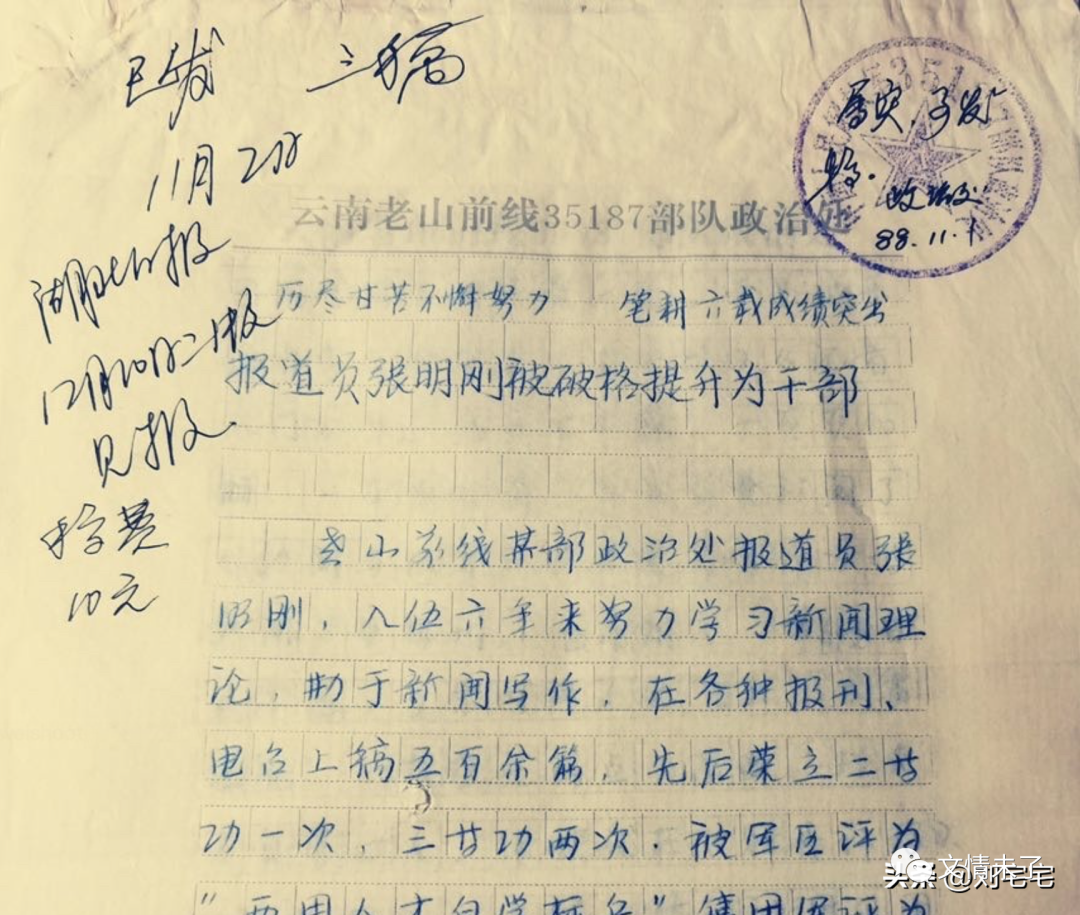 已发 三稿
11月2日
湖北日报
12月10日二版
见报
稿费
10元
属实,可发
稿.
政治处
88.11.1
云南老山前线35187部队政治处
历尽甘苦不懈努力 笔耕六载成绩突出
报道员张明刚被破格提升为干部
老山前线某部政治处报道员张
明刚,入伍六年来努力学习新闻理
论,勤于新闻写作,在各种报刊、
电台上稿五百余篇,先后荣立二等
功一次,三等功两次.被军区评为
“两用人才自学标兵”集团军评为
头条 @刘宅宅
文情未了